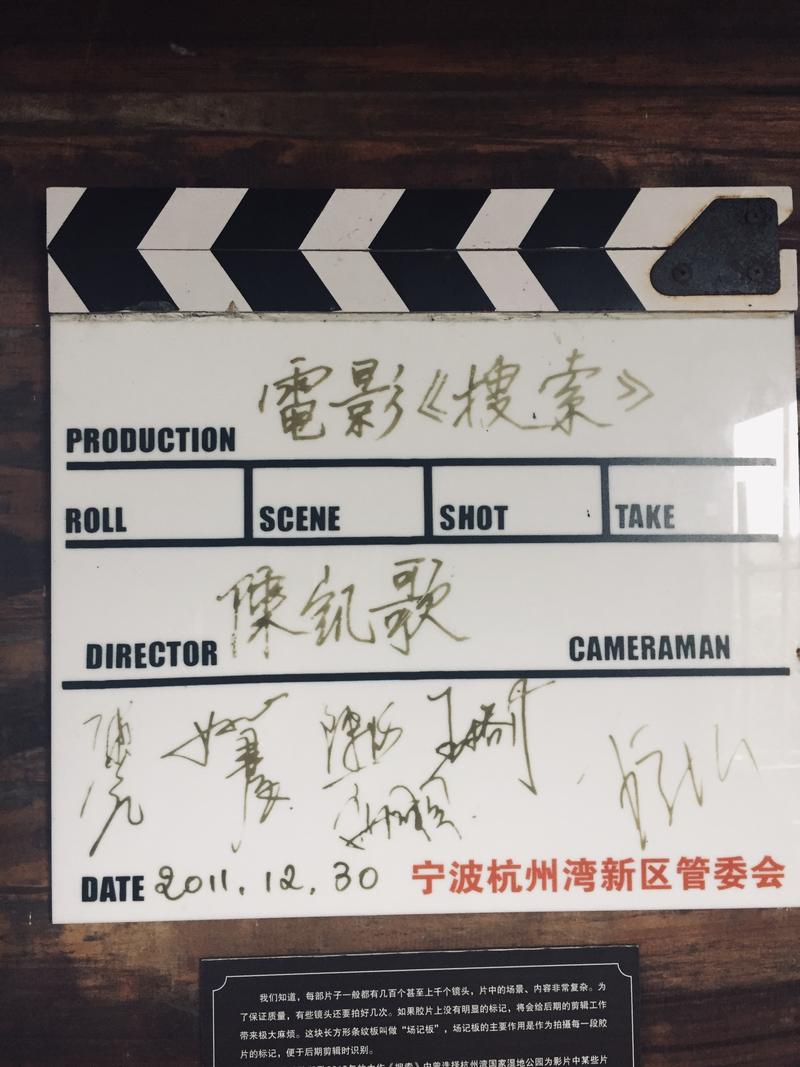 電影《搜索》
PRODUCTION
ROLL SCENE SHOT TAKE
陳凱歌
DIRECTOR CAMERAMAN
DATE 2011.12.30 宁波杭州湾新区管委会
我们知道，每部片子一般都有几百个甚至上千个镜头，片中的场景、内容非常复杂。为
了保证质量，有些镜头还要拍好几次。如果胶片上没有明显的标记，将会给后期的剪辑工作
带来极大麻烦。这块长方形条纹板叫做“场记板”，场记板的主要作用是作为拍摄每一段胶
片的标记，便于后期剪辑时识别。
《搜索》中曾选择杭州湾国家湿地公园为影片中某些片